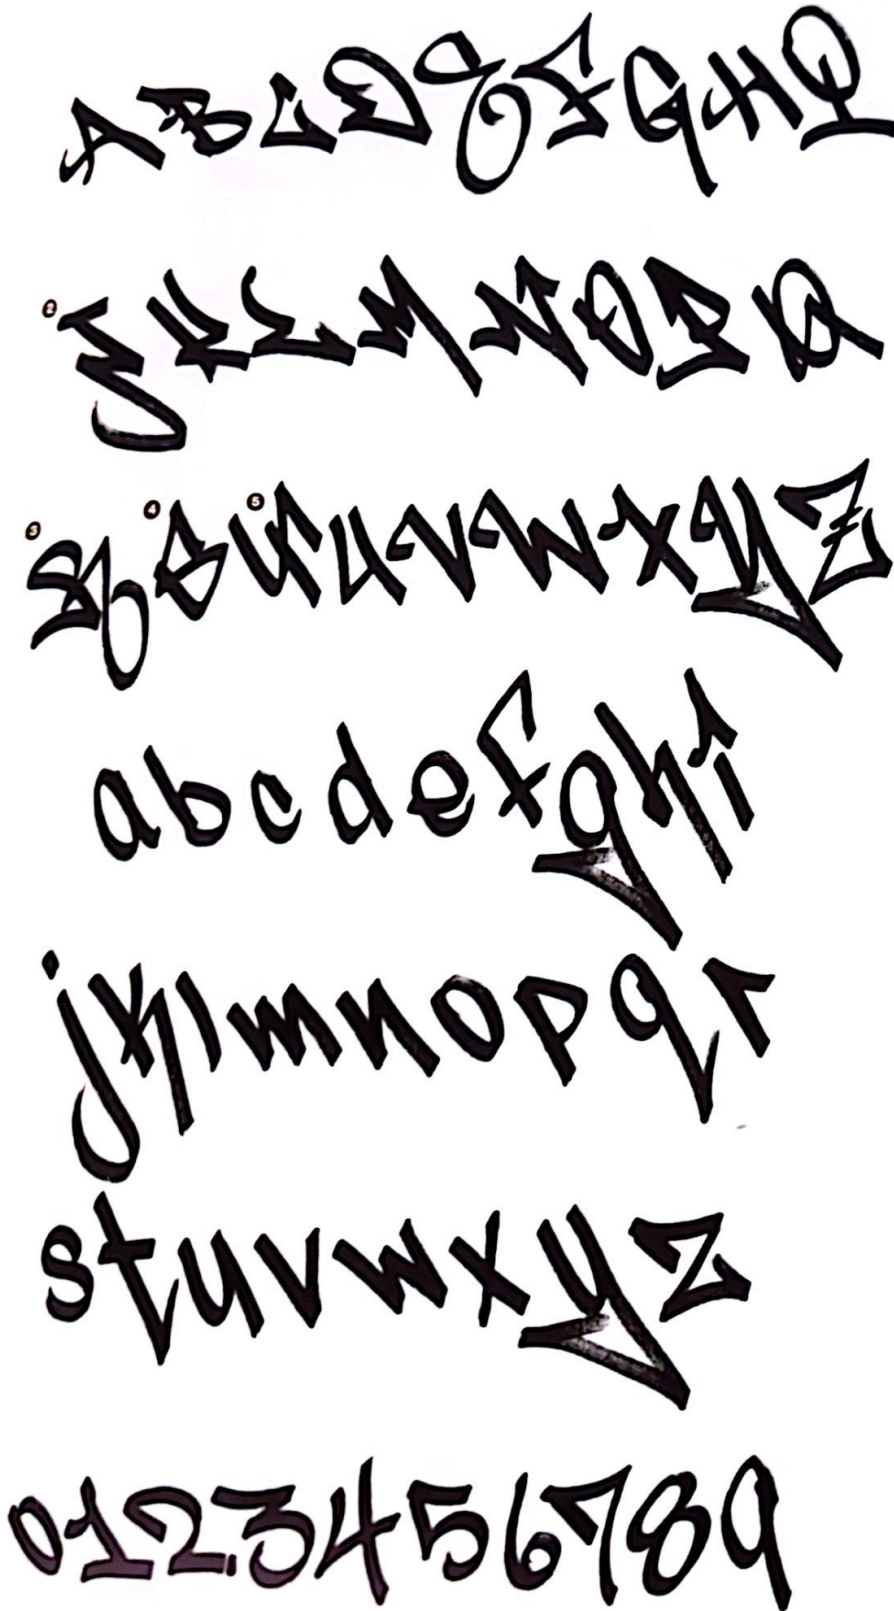 ABCDEFGHI
② JKLMNOPQ
③ R ④ S ⑤ TUVWXYZ
abcdefghi
jklmnopqr
stuvwxyz
0123456789